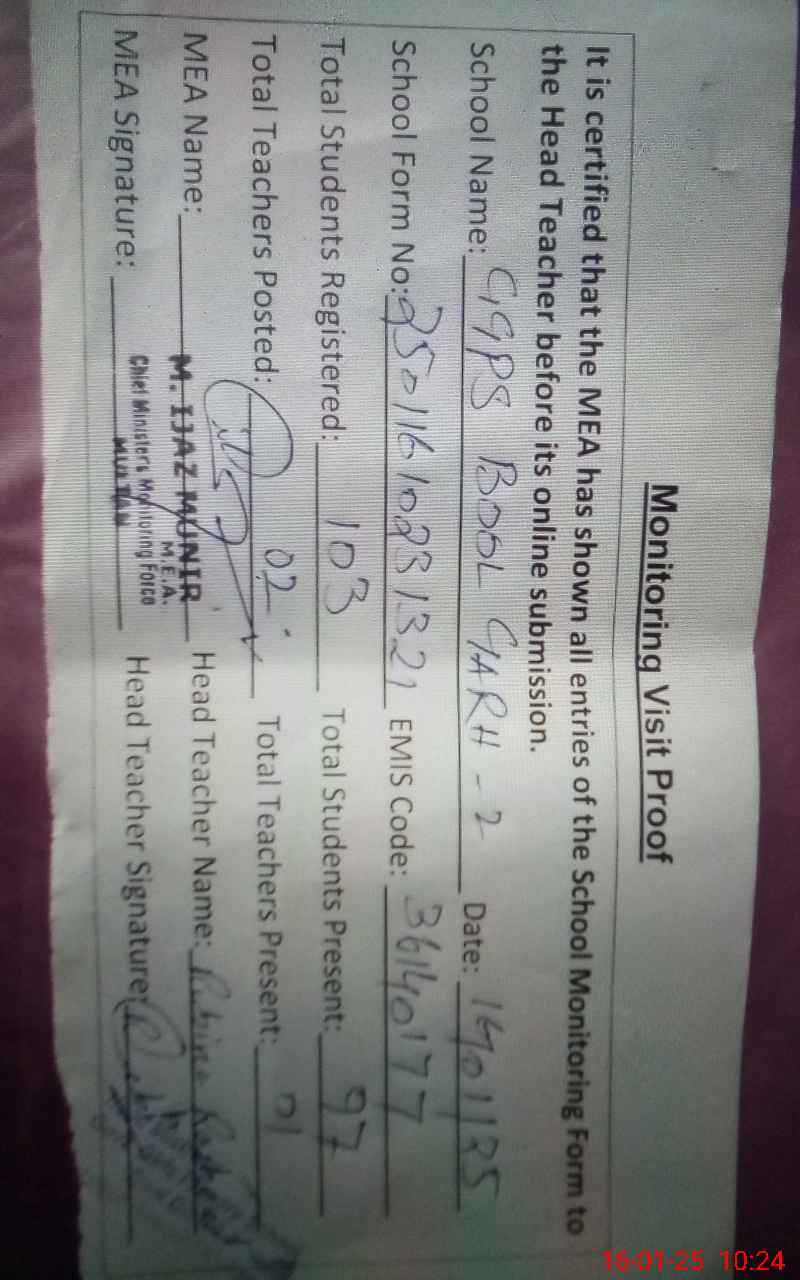 Monitoring Visit Proof
It is certified that the MEA has shown all entries of the School Monitoring Form to
the Head Teacher before its online submission.
School Name: GGPS BOOL GARH - 2 Date: 16/01/25
School Form No: 25011610231321 EMIS Code: 36140177
Total Students Registered: 103 Total Students Present: 97
Total Teachers Posted: 02 Total Teachers Present: 01
MEA Name: M. IJAZ MUNIR Head Teacher Name: Rubina
M.E.A.
Chief Minister's Monitoring Force
MULTAN
MEA Signature: Head Teacher Signature:
16-01-25 10:24